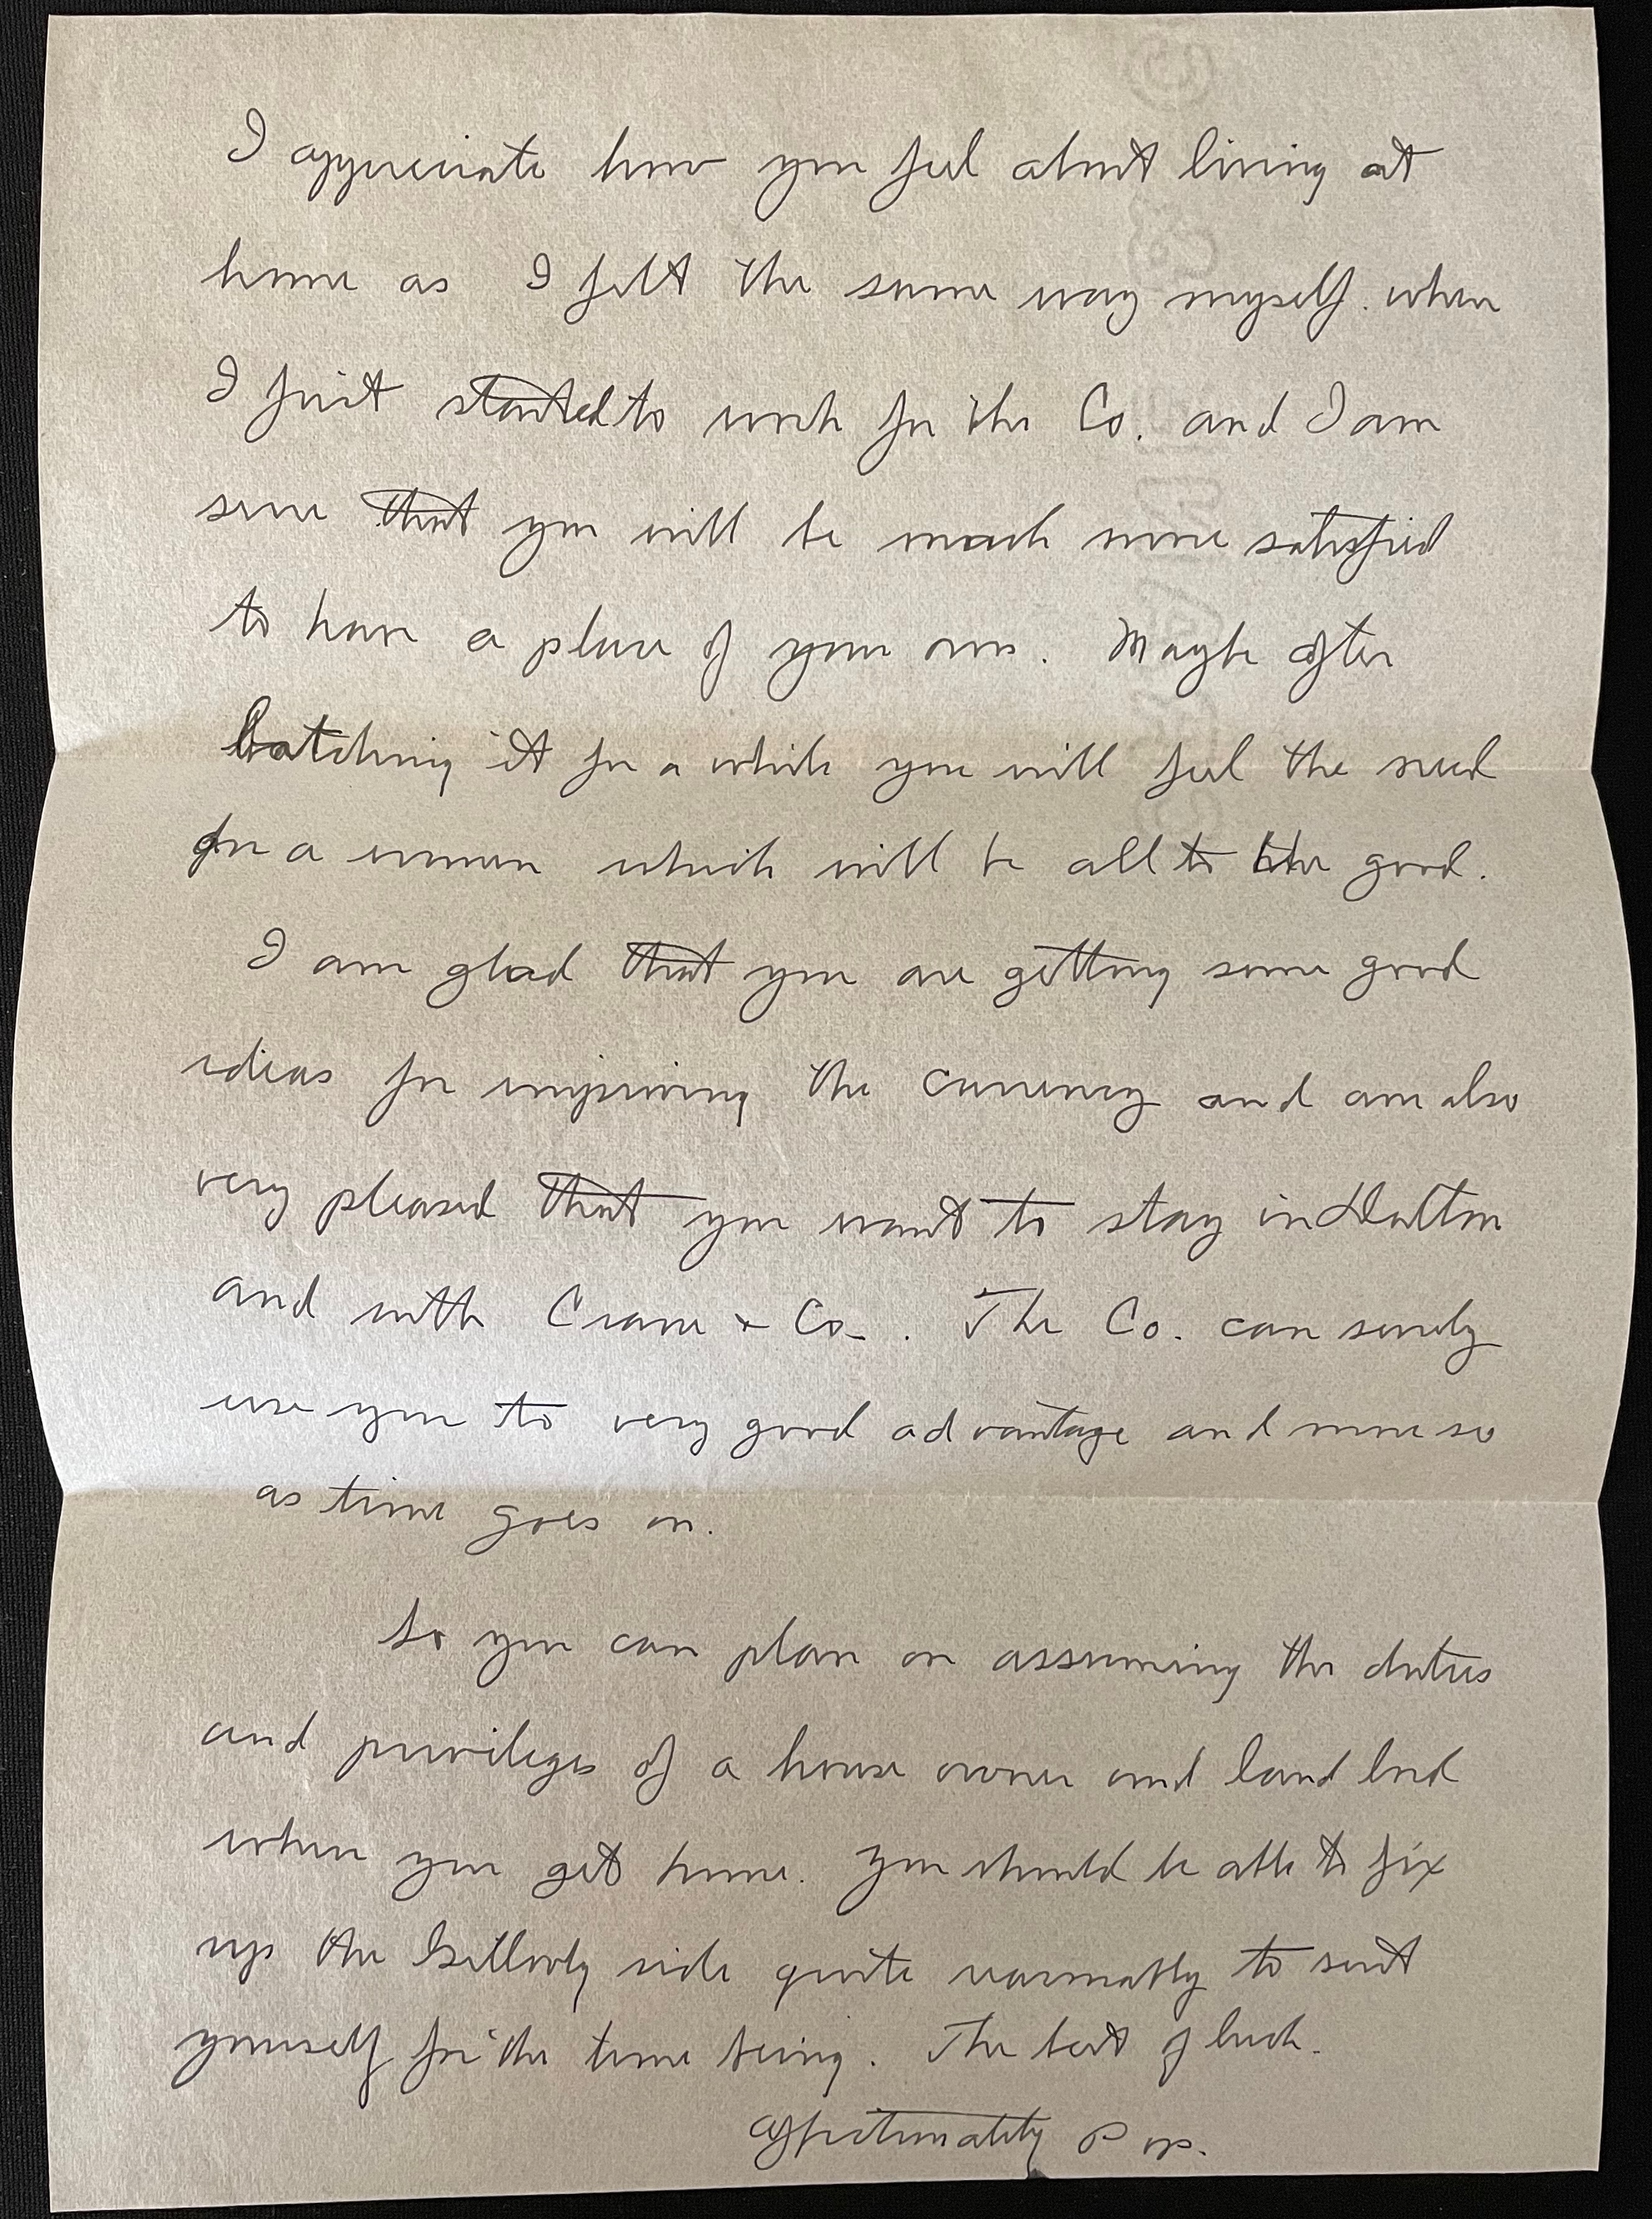 I appreciate how you feel about living at
home as I felt the same way myself when
I first started to work for the Co. and I am
sure that you will be much more satisfied
to have a place of your own. Maybe after
batching it for a while you will feel the need
for a woman which will be all to the good.
I am glad that you are getting some good
ideas for improving the currency and am also
very pleased that you want to stay in Dalton
and with Crane & Co. The Co. can surely
use you to very good advantage and more so
as time goes on.
So you can plan on assuming the duties
and privileges of a house owner and land lord
when you get home. You should be able to fix
up the side quite to suit
yourself for the time being. The best of luck.
Affectionately Pop.